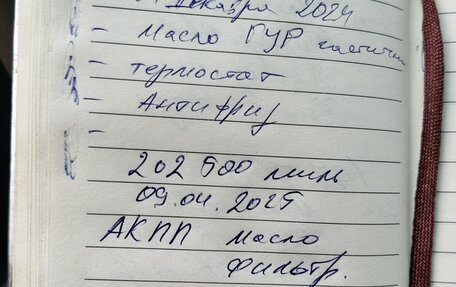 декабря 2024
- Масло ГУР частичн
- термостат
- Антифриз
-
202 500 миль
09.04.2025
АКПП масло
фильтр.